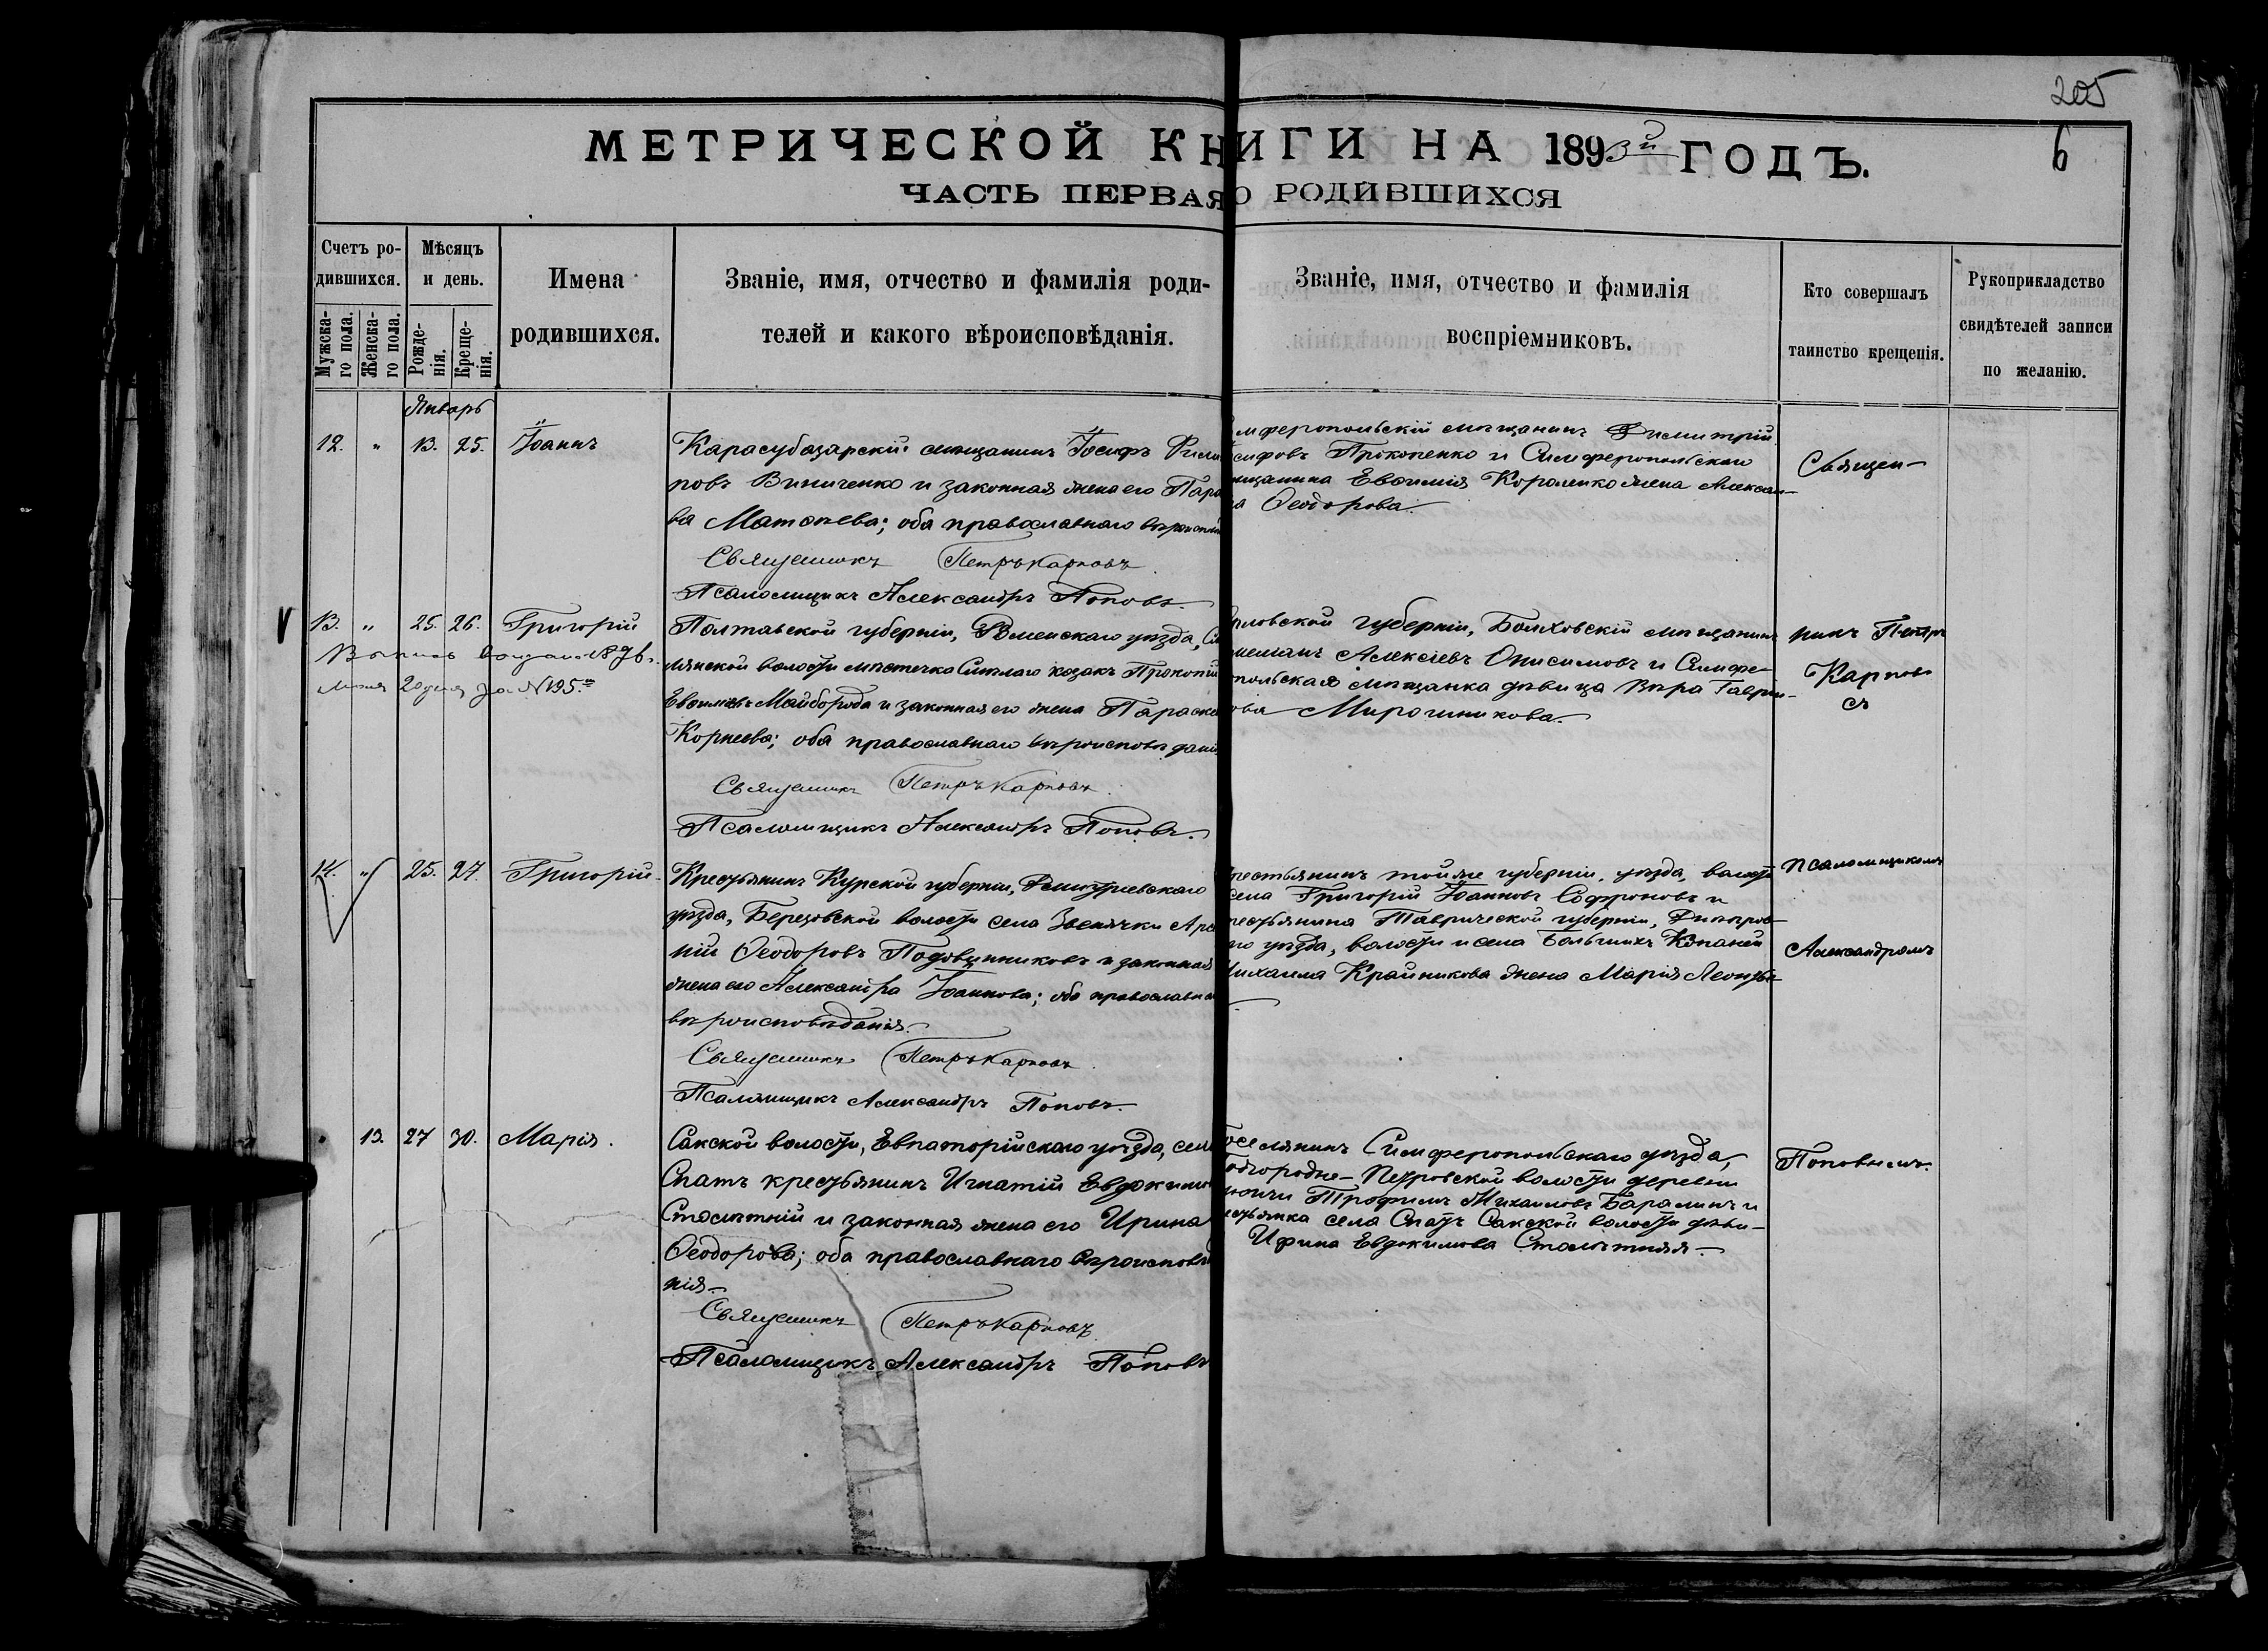 205
6
МЕТРИЧЕСКОЙ КНИГИ НА 1893й ГОДЪ.
ЧАСТЬ ПЕРВАЯ О РОДИВШИХСЯ
Счетъ ро-
дившихся.
Мужска-
го пола.
Женска-
го пола.
Мѣсяцъ
и день.
Рожде-
нія.
Креще-
нія.
Имена
родившихся.
Званіе, имя, отчество и фамилія роди-
телей и какого вѣроисповѣданія.
Званіе, имя, отчество и фамилія
воспріемниковъ.
Кто совершалъ
таинство крещенія.
Рукоприкладство
свидѣтелей записи
по желанію.
Январь
12. " 13. 25. Іоаннъ
Карасубазарскій мѣщанинъ Іосифъ
повъ Виниченко и законная жена его Пара
ва Матѳѣева; оба православнаго вѣроиспов
Священникъ Петръ Карповъ
Псаломщикъ Александръ Поповъ.
мферопольскій мѣщанинъ Димитрій
сифовъ Прокопенко и Симферопольскаго
щанина Евѳимія Короленко жена Алексан-
а Ѳеодорова.
Священ-
13. " 25. 26. Григорій
Выпись выдана 1896 г.
20 дня за № 195.
Полтавской губерніи, Роменскаго уѣзда, См
лянской волости мѣстечка Смѣлаго козакъ Прокопій
Евѳиміевъ Майборода и законная его жена Параске
Корнеева; оба православнаго вѣроисповѣдані
Священникъ Петръ Карповъ
Псаломщикъ Александръ Поповъ.
рловской губерніи, Болховскій мѣщанинъ
Алексіевъ Онисимовъ и Симфе-
польская мѣщанка дѣвица Вѣра Гаври-
ова Мирошникова.
никъ Петръ
Карповъ
съ
14. " 25. 27. Григорій
Крестьянинъ Курской губерніи, Дмитріевскаго
уѣзда, Березовской волости села Звенячки Арсе
ній Ѳеодоровъ Подовинниковъ и законная
жена его Александра Іоаннова; оба православна
вѣроисповѣданія.
Священникъ Петръ Карповъ
Псаломщикъ Александръ Поповъ.
рестьянинъ той же губерніи, уѣзда, волости
села Григорій Іоанновъ Софроновъ и
рестьянина Таврической губерніи, Днѣпров
го уѣзда, волости и села Большихъ Копаней
Михаила Крайникова жена Марія Леонтье
Псаломщикомъ
Александромъ
13. 27 30. Марія.
Сакской волости, Евпаторійскаго уѣзда, села
Спатъ крестьянинъ Игнатій Евдокимо
Столѣтній и законная жена его Ирина
Ѳеодорова; оба православнаго вѣроисповѣда
нія.
Священникъ Петръ Карповъ
Псаломщикъ Александръ Поповъ
Поселянинъ Симферопольскаго уѣзда,
одгородне-Петровской волости деревни
Трофимъ Михаиловъ Баралинъ и
естьянка села Спатъ Сакской волости дѣви-
Ирина Евдокимова Столѣтняя.
Поповымъ.